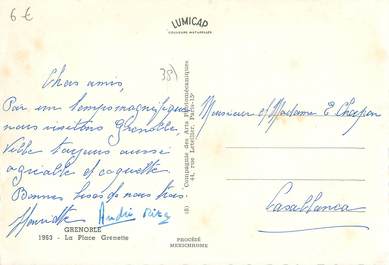 6 €
LUMICAP
COULEURS NATURELLES
381
Chers amis,
Par un temps magnifique
nous visitons Grenoble,
ville toujours aussi
agréable et coquette
Bonnes bises de nous trois.
Henriette André
GRENOBLE
1953 - La Place Grenette
Compagnie des Arts Photomécaniques
44, rue Letellier, Paris-15e
Monsieur et Madame E
Casablanca
PROCÉDÉ
MEXICHROME